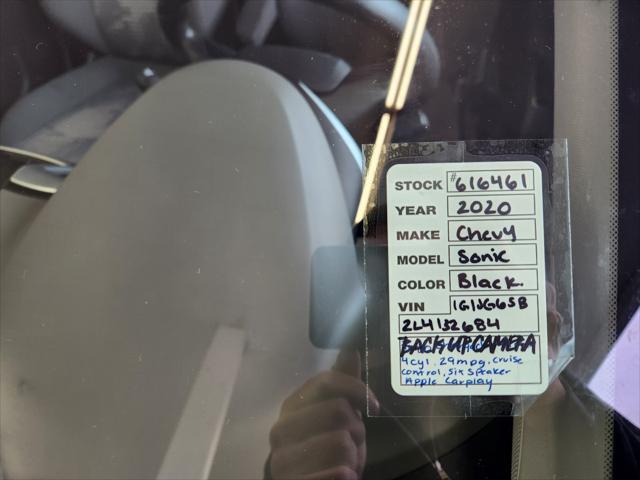 STOCK #616461
YEAR 2020
MAKE Chevy
MODEL Sonic
COLOR Black.
VIN 1G1JG6SB
2L4132684
BACKUP CAMERA
4cyl, 29mpg, cruise
control, Six Speaker
Apple Carplay